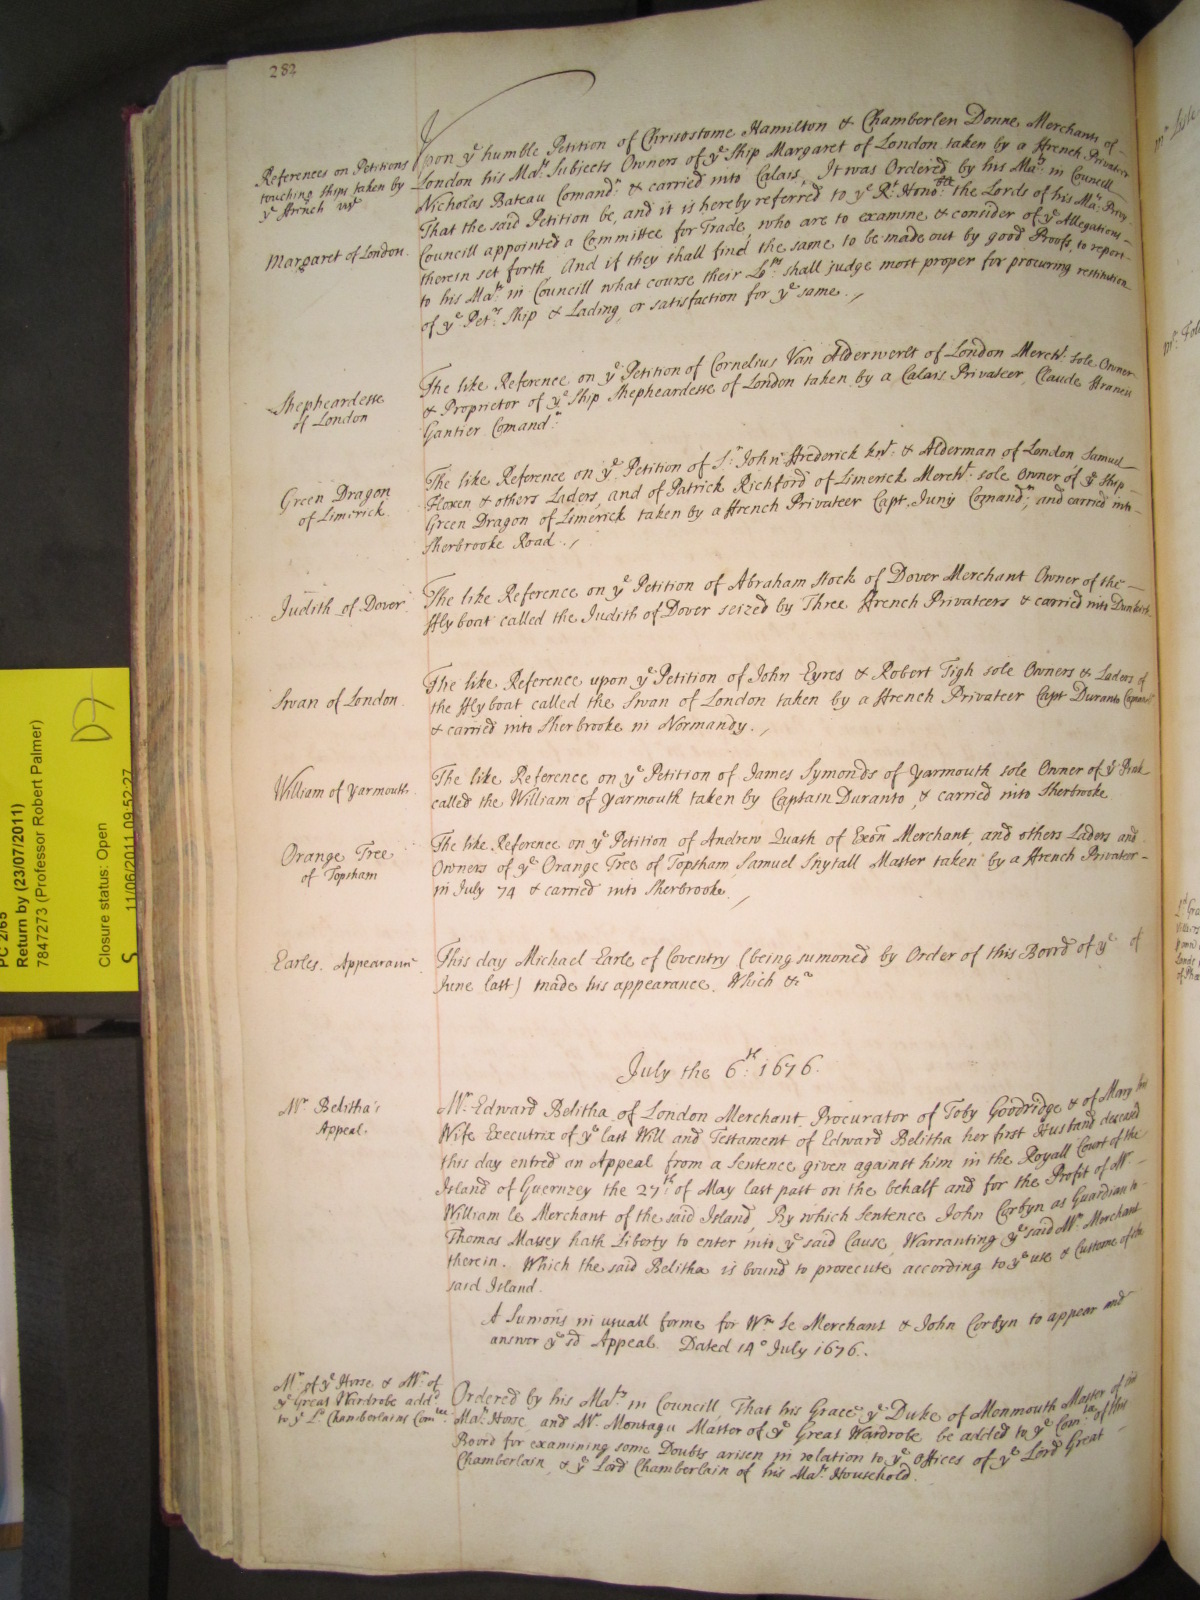 282
References on Petitions
touching ships taken by
yᵉ ffrench
Margaret of London.
Upon yᵉ humble Petition of Chrisostome Hamilton & Chamberlen Donne, Merchants of
London his Maᵗˢ Subjects Owners of yᵉ Ship Margaret of London taken by a ffrench Privateer
Nicholas Bateau Comandʳ & carried into Calais, It was Ordered by his Maᵗʸ in Councell
That the said Petition be, and it is hereby referred to yᵉ Rᵗ Honoᵇˡᵉ the Lords of his Maᵗˢ Privy
Councill appointed a Committee for Trade, who are to examine & consider of yᵉ Allegations
therein set forth And if they shall find the same to be made out by good Proofs, to report
to his Maᵗʸ in Councill what course their Lᵖˢ shall judge most proper for procuring restitution
of yᵉ Petʳˢ Ship & Lading, or satisfaction for yᵉ same.,
Shepheardesse
of London
The like Reference on yᵉ Petition of Cornelius Van Alderwerlt of London Merchᵗ sole Owner
& Proprietor of yᵉ Ship Shepheardesse of London taken by a Calais Privateer, Claude ffrancis
Gantier Comandʳ:
Green Dragon
of Limerick
The like Reference on yᵉ Petition of Sʳ John ffrederick Knᵗ & Alderman of London Samuel
& others Laders, and of Patrick Richford of Limerick Merchᵗ sole Owner of yᵉ Ship
Green Dragon of Limerick taken by a ffrench Privateer Capt. Juny Comandʳ, and carried into
Sherbrooke Road.,
Judith of Dover.
The like Reference on yᵉ Petition of Abraham Stock of Dover Merchant Owner of the
fflyboat called the Judith of Dover seized by Three ffrench Privateers & carried into Dunkirk
Swan of London
The like Reference upon yᵉ Petition of John Eyres & Robert Tigh sole Owners & Laders of
the fflyboat called the Swan of London taken by a ffrench Privateer Capt Duranto Comandʳ
& carried into Sherbrooke in Normandy.,
William of Yarmouth
The like Reference on yᵉ Petition of James Symonds of Yarmouth sole Owner of yᵉ Pink
called the William of Yarmouth taken by Captain Duranto, & carried into Sherbrooke
Orange Tree
of Topsham
The like Reference on yᵉ Petition of Andrew Quash of Exon Merchant, and others Laders and
Owners of yᵉ Orange Tree of Topsham, Samuel Snytall Master taken by a ffrench Privateer
in July 74 & carried into Sherbrooke.,
Earles Appearance
This day Michael Earle of Coventry (being sumoned by Order of this Board of yᵉ of
June last) made his appearance. Which &cᵃ
July the 6ᵗʰ: 1676.
Mʳ Belitha's
Appeal.
Mʳ Edward Belitha of London Merchant, Procurator of Toby Goodridge & of Mary his
Wife Executrix of yᵉ last Will and Testament of Edward Belitha her first Husband deceased
this day entred an Appeal from a Sentence given against him in the Royall Court of the
Island of Guernzey the 27ᵗʰ of May last past on the behalf and for the Profit of Mʳ
William le Merchant of the said Island, By which Sentence John Corbyn as Guardian to
Thomas Massey hath Liberty to enter into yᵉ said Cause, Warranting yᵉ said Mʳ Merchant
therein. Which the said Belitha is bound to prosecute according to yᵉ use & Custome of the
said Island.
A Sumons in usuall forme for Wᵐ Le Merchant & John Corbyn to appear and
answer yᵉ sd Appeal. Dated 14º July 1676.
Mʳ of yᵉ Horse & Mʳ of
yᵉ Great Wardrobe addᵈ
to yᵉ Lᵈ Chamberlains Comᵗᵉᵉ:
Ordered by his Maᵗʸ in Councill, That his Grace yᵉ Duke of Monmouth Master of his
Maᵗˢ Horse, and Mʳ Montagu Master of yᵉ Great Wardrobe, be added to yᵉ Comᵗᵉᵉ of this
Board for examining some Doubts arisen in relation to yᵉ Offices of yᵉ Lord Great
Chamberlain, & yᵉ Lord Chamberlain of his Maᵗˢ Household.
PC 2/65
Return by (23/07/2011)
7847273 (Professor Robert Palmer)
Closure status: Open
11/06/2011 09:52:27
S
D7